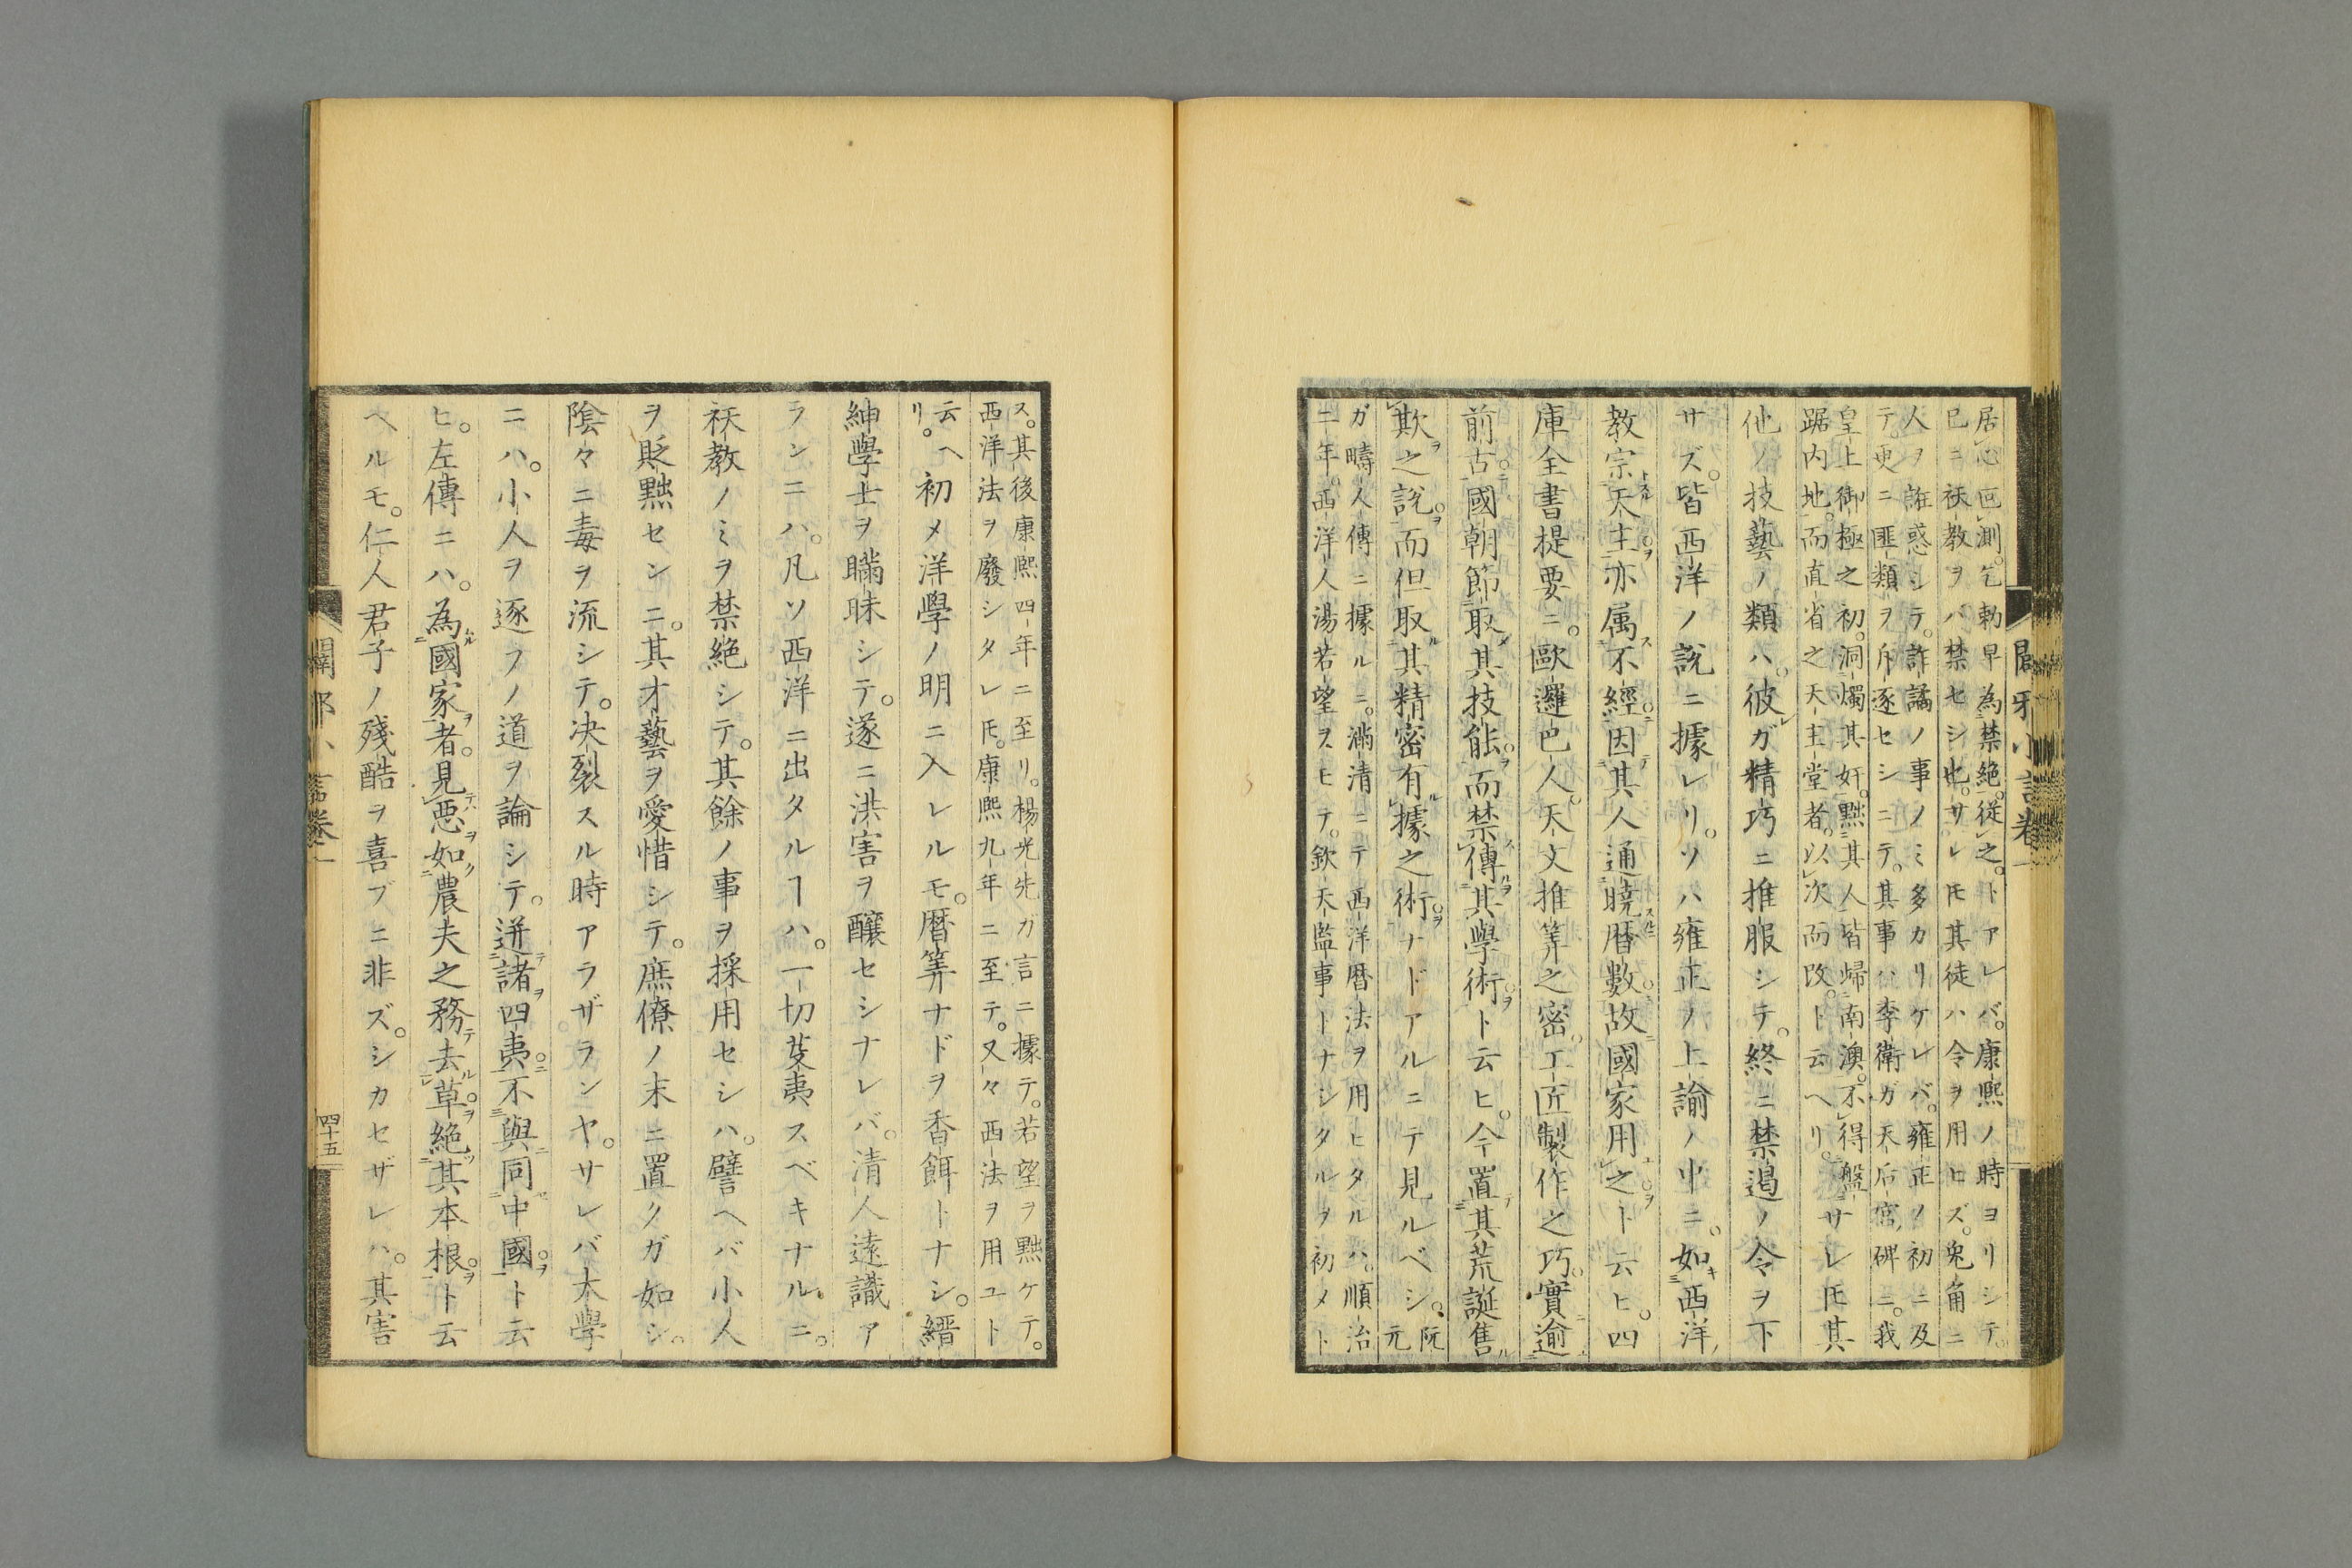 居心叵測。乞勅早為禁絶。従之。トアレバ。康熙ノ時ヨリシテ。
已ニ祅教ヲバ禁セシ也。サレ𪜈其徒ハ令ヲ用ヒズ。兔角ニ
人ヲ誑惑シテ。詐譎ノ事ノミ多カリケレバ。雍正ノ初ニ及
テ。更ニ匪類ヲ斥逐セシニテ。其事ハ李衛ガ天后宮碑ニ。我
皇上御極之初。洞燭其奸。黙其人皆歸南澳。不得盤
踞内地。而直省之天主堂者。以次而改。ト云ヘリ。サレ𪜈其
他ノ技藝ノ類ハ。彼ガ精巧ニ推服シテ。終ニ禁遏ノ令ヲ下
サズ。皆西洋ノ說ニ據レリ。ソハ雍正ノ上諭ノ中ニ。如西洋
教宗天主亦属不經因其人通曉暦數故國家用之ト云ヒ。四
庫全書提要ニ。歐邏巴人天文推筭之密工匠製作之巧實逾
前古國朝節取其技能而禁傳其學術ト云ヒ。今置其荒誕售
欺之說而但取其精密有據之術ナドアルニテ見ルベシ。阮元
ガ疇人傳ニ據ルニ。滿清ニテ西洋暦法ヲ用ヒタルハ。順治
二年。西洋人湯若望ヲ以テ。欽天監事トナシタルヲ初メト
闢邪小言卷一
ス。其後康熙四年ニ至リ。楊光先ガ言ニ據テ。若望ヲ黜ケテ。
西洋法ヲ廢シタレ𪜈。康熙九年ニ至テ。又々西法ヲ用ユト
云ヘリ。初メ洋學ノ明ニ入レルモ。暦筭ナドヲ香餌トナシ。縉
紳學士ヲ瞞昧シテ。遂ニ洪害ヲ釀セシナレバ。清人遠識ア
ランニハ。凡ソ西洋ニ出タルヿハ。一切芟夷スベキナルニ。
祅教ノミヲ禁絶シテ。其餘ノ事ヲ採用セシハ。譬ヘバ小人
ヲ貶黜センニ。其才藝ヲ愛惜シテ。庶僚ノ末ニ置クガ如シ。
陰々ニ毒ヲ流シテ。决裂スル時アラザランヤ。サレバ大學
ニハ。小人ヲ逐フノ道ヲ論シテ。迸諸四夷不與同中國ト云
ヒ。左傳ニハ。為國家者。見悪如農夫之務去草絶其本根ト云
ヘルモ。仁人君子ノ殘酷ヲ喜ブニ非ズ。シカセザレハ。其害
闢邪小言卷一
四十五